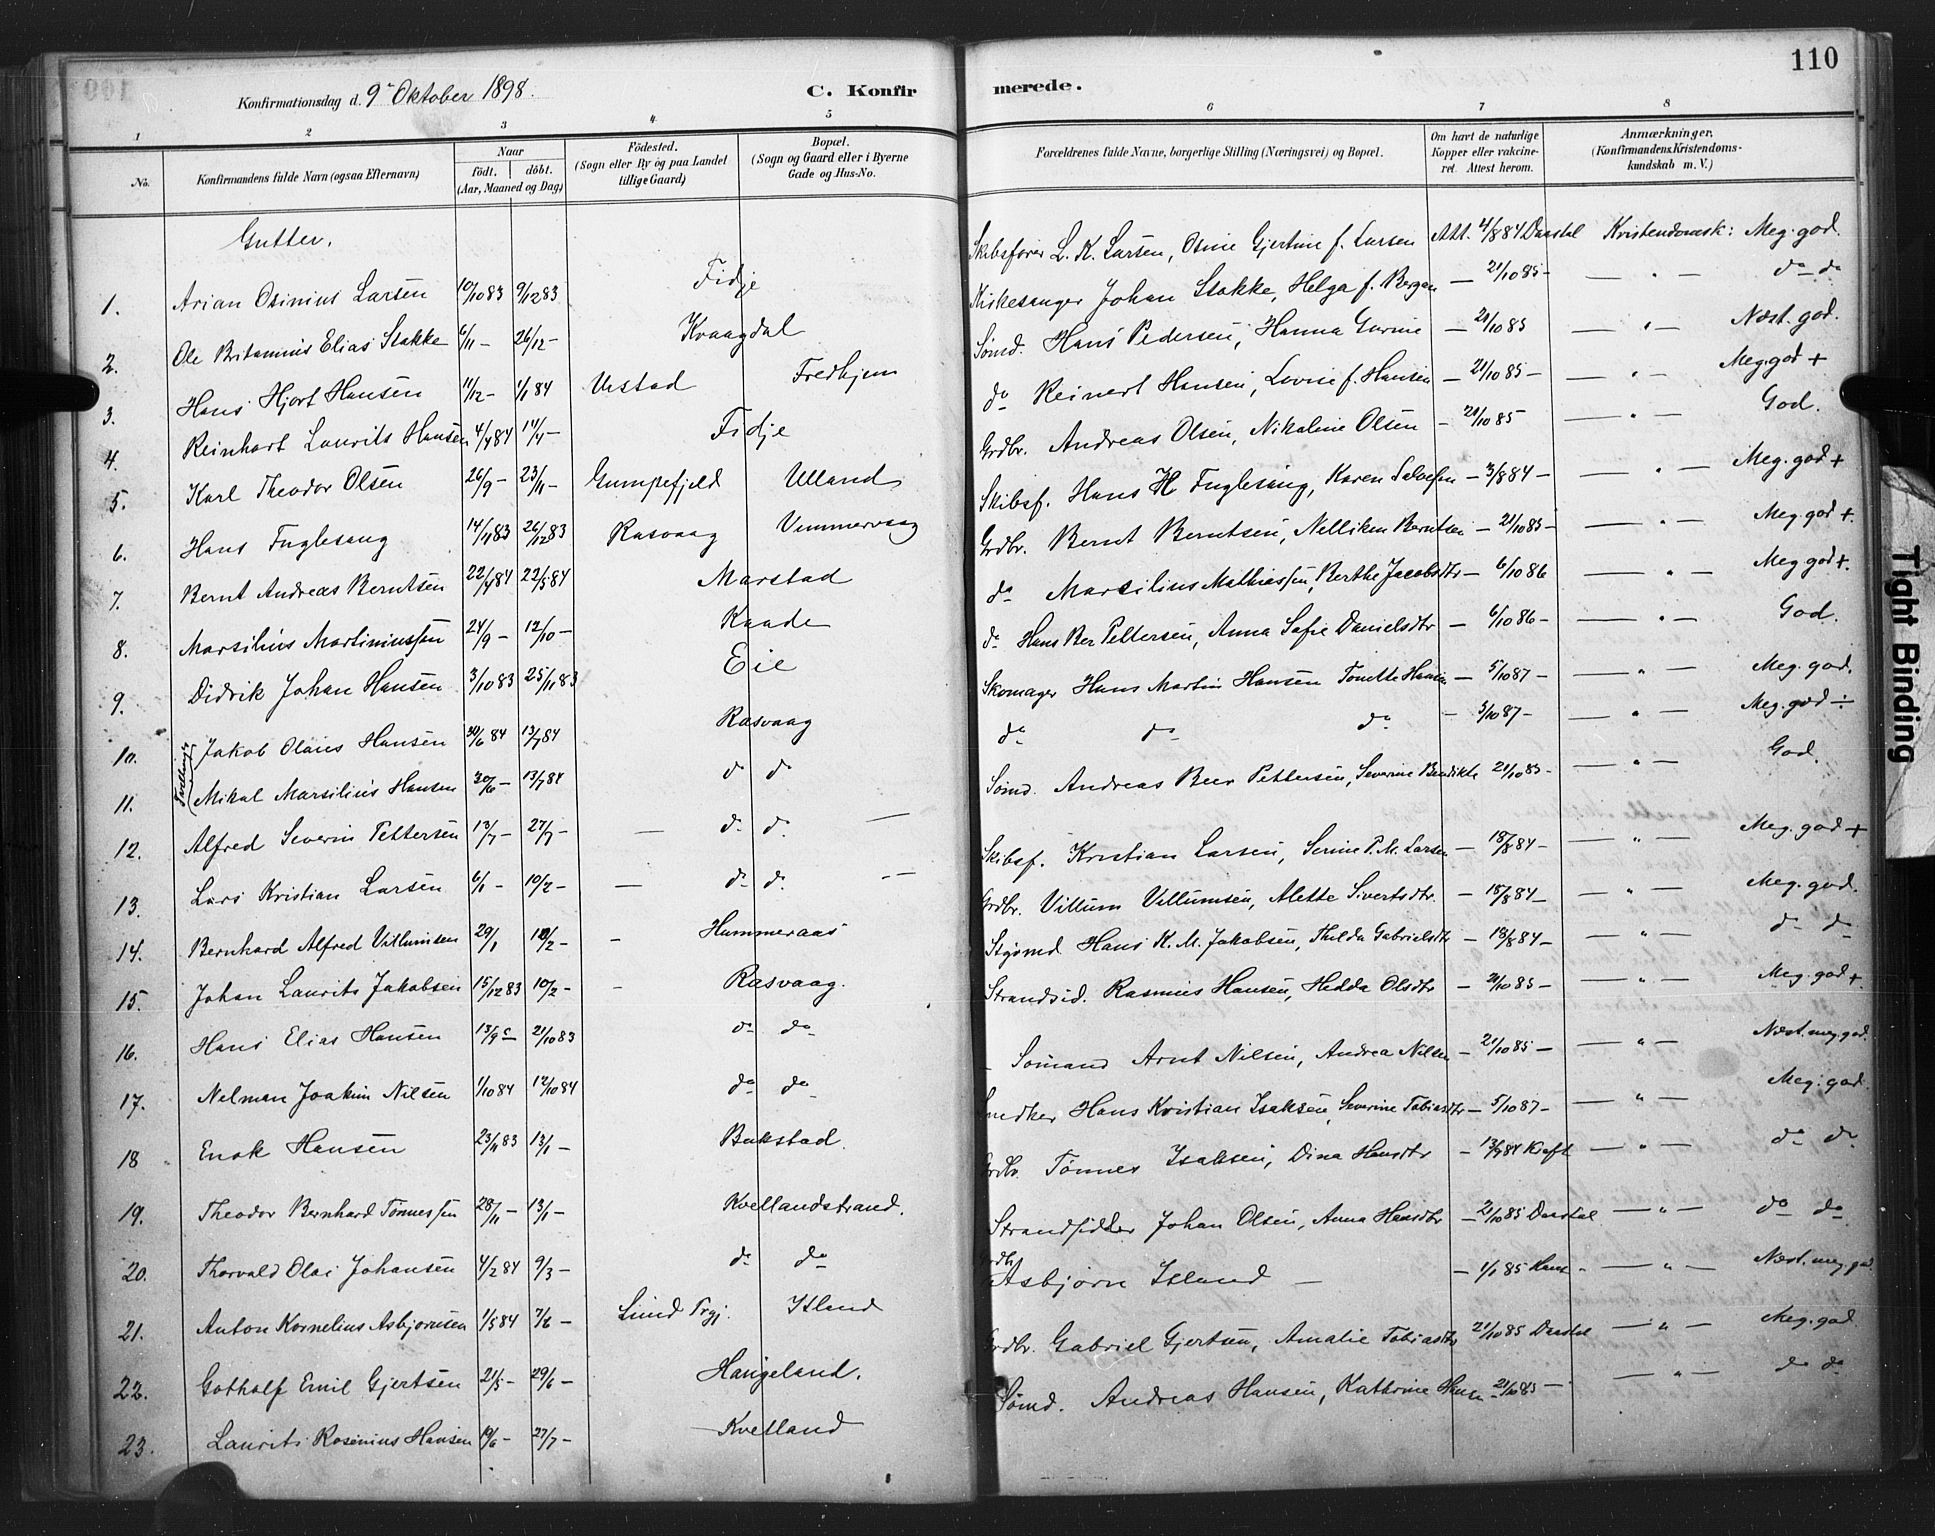 110
Konfirmationsdag d. 9de Oktober 1898.
C. Konfirmerede.
1 2 3 4 5 6 7 8
No.
Konfirmandens fulde Navn (ogsaa Efternavn)
Naar
födt. döbt.
(Aar, Maaned og Dag)
Födested.
(Sogn eller By og paa Landet
tillige Gaard)
Bopæl.
(Sogn og Gaard eller i Byerne
Gade og Hus-No.
Forældrenes fulde Navne, borgerlige Stilling (Næringsvei) og Bopæl.
Om havt de naturlige
Kopper eller vakcine-
ret. Attest herom.
Anmærkninger.
(Konfirmandens Kristendoms-
kundskab m. V.)
Gutter.
1. Arian Osinius Larsen 10/10 83 9/12 83 Fidje Skibsfører L. K. Larsen, Osine Gjertine f. Larsen Att. 4/8 84 Daastal Kristendomsk: Meg. god.
2. Ole Britanius Elias Stakke 6/11 — 26/12 — Kvaagdal Kirkesanger Johan Stakke, Helga f. Bergan — 21/10 85 — — " — do do
3. Hans Hjort Hansen 11/12 — 1/1 84 Urstad Fredhjem Sømd. Hans Pedersen, Hanna Gurine — 21/10 85 — " — Næst. god.
4. Reinhart Laurits Hansen 4/4 84 14/4 — Fidje do Reinert Hansen, Lovise f. Hansen — 21/10 85 — — " — Meg. god +
5. Karl Theodor Olsen 26/9 — 23/11 — Gumpefjeld Ulland Grdbr. Andreas Olsen, Nikoline Olsen — 21/10 85 — " — God.
6. Hans Fuglesang 14/11 83 26/12 83 Rasvaag Vemmervaag Skibsf. Hans H Fuglesang, Karen Salvesen — 3/8 84 — — " — Meg. god +
7. Bernt Andreas Berntsen 22/4 84 22/5 84 Marstad Grdbr. Bernt Berntsen, Nelliken Berntsen — 21/10 85 — — " — Meg. god +.
8. Marsilius Martiniussen 24/9 — 12/10 — Kaade do Marsilius Mathiassen, Berthe Jacobsdtr — 6/10 86 — " — Meg god +.
9. Didrik Johan Hansen 3/10 83 25/11 83 Eie do Hans Ber Pettersen, Anna Sofie Danielsdtr — 6/10 86 — — " — God.
10. Tvillinge Jakob Olaus Hansen 30/6 84 13/7 84 Rasvaag Skomager Hans Martin Hansen Tonette Hansen — 5/10 87 — — " — Meg. god.
11. Mikal Marsilius Hansen 30/6 — 13/7 84 do do do do do — 5/10 87 — — " — Meg. god ÷
12. Alfred Severin Pettersen 13/7 — 27/7 — — do do — Sømd. Andreas Beer Pettersen, Severine Bendikte 21/10 85 — — " — God.
13. Lars Kristian Larsen 6/1 — 10/2 — — do do — Skibsf. Kristian Larsen, Serine P. M. Larsen — 18/8 84 — — " — Meg. god +
14. Bernhard Alfred Villumsen 29/1 10/2 — — Hummeraas Grdbr. Villum Villumsen, Alette Sivertsdtr. — 18/8 84 — — " — Meg. god.
15. Johan Laurits Jakobsen 15/12 83 10/2 — — Rasvaag. Stgsmd. Hans K. M. Jakobsen, Thilda Gabrielsdtr — 18/8 84 — — " — do do
16. Hans Elias Hansen 13/9 — 21/10 83 do do Strandsid. Rasmus Hansen, Hedda Olsdtr — 21/10 85 — — " — Meg. god +
17. Nelman Joakim Nilsen 1/10 84 12/10 84 do do Sømand Arnt Nilsen, Andrea Nilsen — 21/10 85 — — " — Næst. meg. god.
18 Enok Hansen 23/11 83 13/1 — Bukstad. Snedker Hans Kristian Isaksen, Severine Tobiasdtr — 5/10 87 — — " — Meg. god.
19. Theodor Bernhard Tønnessen 28/11 — 13/1 — Kvellandstrand. Grdbr. Tønnes Isaksen, Dina Hansdtr — 13/9 84 Kraft — " — do do
20. Thorvald Olai Johansen 4/2 84 9/3 — do do Strandsidder Johan Olsen, Anna Hansdtr — 21/10 85 Daastal — " — do do
21. Anton Kornelius Asbjørnsen 1/5 84 7/6 — Lund Prgj. Island Grdbr Asbjørn Island — — 1/1 85 — " — Næst. meg. god
22. Gotholf Emil Gjertsen 21/5 — 29/6 — Haugeland. Grdbr. Gabriel Gjertsen, Amalie Tobiasdtr 21/10 85 Daastal — " — Meg. god
23. Laurits Rosenius Hansen 19/6 — 27/7 — Kvelland Sømd. Andreas Hansen, Kathrine Hansen 21/10 85 — — " — do do
Tight Binding